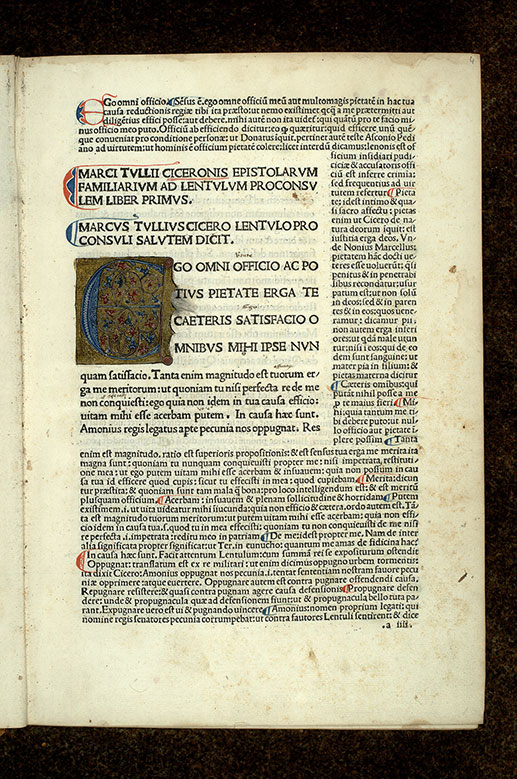 EGo omni officio. Sēsus ē. ego omne officiū meū aut multomagis pietatē in hac tua
causa reductionis regiæ tibi ita præsto: ut nemo existimet qcq̄ a me prætermitti aut
diligētius effici posse: aut debere. mihi autē non ita uidet: qui quātū pro te facio mi
nus officio meo puto. Officiū ab efficiendo dicitur: eo q̄ quæritur: quid efficere unū quē
que conueniat pro conditione personæ: ut Donatus iquit. pertinet autē teste Asconio Pedi
ano ad uirtutem: ut hominis ē officium pietatē colere: lict interdū dicamus: lenonis est of
ficium insidiari pudici
ciæ & accusatoris offi
ciū est inferre crimia:
sed frequentius ad uir
tutem refertur Pieta
te: idest intimo & qua
si sacro affectu: pietas
enim ut Cicero de na
tura deorum iquit: est
iustitia erga deos. Vn
de Nonius Marcellus:
pietatem hāc docti ue
teres esse uoluerūt: q̄si
penitus & in penetrabi
libus recondatur: usur
patum est: ut non solū
in deos: sed & in paren
tes & in eos: quos uene
ramur: dicamur pii
non autem erga inferi
ores: ut q̄dā male utun
tur: nisi i eos: qui de eo
dem sunt sanguine: ut
mater pia in filium: &
pietas materna dicitur
Cæteris omibus: qui
putāt nihil possea me
p re maius fieri Mi
hi: quia tantum me ti
bi debere puto: ut nul
lo officio aut pietate i
plere possim Tanta
MARCI TVLLII CICERONIS EPISTOLARVM
FAMILIARVM AD LENTVLVM PROCONSV
LEM LIBER PRIMVS.
MARCVS TVLLIVS CICERO LENTVLO PRO
CONSVLI SALVTEM DICIT.
EGO OMNI OFFICIO AC PO
TIVS PIETATE ERGA TE
CAETERIS SATISFACIO O
MNIBVS MIHI IPSE NVN
quam satisfacio. Tanta enim magnitudo est tuorum er-
ga me meritorum: ut quoniam tu nisi perfecta re de me
non conquiesti: ego quia non idem in tua causa efficio:
uitam mihi esse acerbam putem. In causa hæc sunt.
Amonius regis legatus apte pecunia nos oppugnat. Res
enim est magnitudo. ratio est superioris propositionis: & est sensus tua erga me merita ita
magna sunt: quoniam tu nunquam conquieuisti propter me: nisi impetrata, restituti
one mea: ut ego putem uitam mihi esse acerbam & insuauem: quia non possum in cau
sa tua id efficere quod cupis: sicut tu effecisti in mea: quod cupiebam Merita: dicun
tur præstita: & quoniam sunt tam mala q̄ bona: pro loco intelligendum est: & est meritū
plusquam officium Acerbam: insuauem & plenam sollicitudine & horridam Putem
existimem.i. ut uita uideatur mihi iucunda: quia non efficio & cætera. ordo autem est. Tā
ta est magnitudo tuorum meritorum: ut putem uitam mihi esse acerbam: quia non effi
cio idem in causa tua.s. quod tu in mea effecisti: quoniam tu non conquieuisti de me nisi
re perfecta.i. impetrata: reditu meo in patriam De me: idest propter me. Nam de inter
alia significata propter significatur: Ter. in eunucho: quantum me amas de fidicina hac?
In causa hæc sunt. Facit attentum Lentulum: cum summā rei se expositurum ostendit
Oppugnat: translatum est ex re militari: ut enim dicimus oppugno urbem tormentis:
ita dixit Cicero: Amonius oppugnat nos pecunia.i. tentat sententiam nostram fauore pecu
niæ opprimere: atque euertere. Oppugnare autem est contra pugnare offendendi causa.
Repugnare resistere: & quasi contra pugnam agere causa defensionis Propugnare defen
dere: unde & propugnacula quæ ad defensionem fiunt: ut & propugnacula bello tuta pa-
rant. Expugnare uero est uī & pugnando uincere Amonius: nomen proprium legati: qui
nomine regis senatores pecunia corrumpebat: ut contra fautores Lentuli sentirent: & dice
.a iiii.